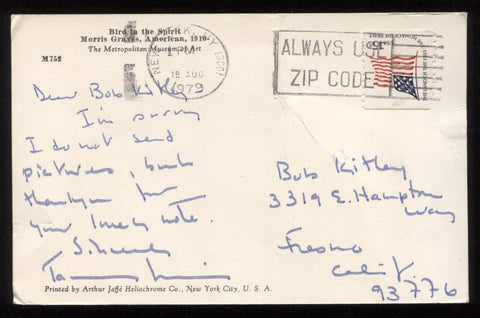 Bird in the Spirit
Morris Graves, American, 1910-
The Metropolitan Museum of Art
M752
NEW YORK, NY
PM
18 AUG
1979
ALWAYS USE
ZIP CODE
15c
Dear Bob Kitley
I'm sorry
I do not send
pictures, but
thankyou for
your lovely note.
Sincerely
Bob Kitley
3319 E. Hampton
Way
Fresno
Calif.
93776
Printed by Arthur Jaffé Heliochrome Co., New York City, U. S. A.